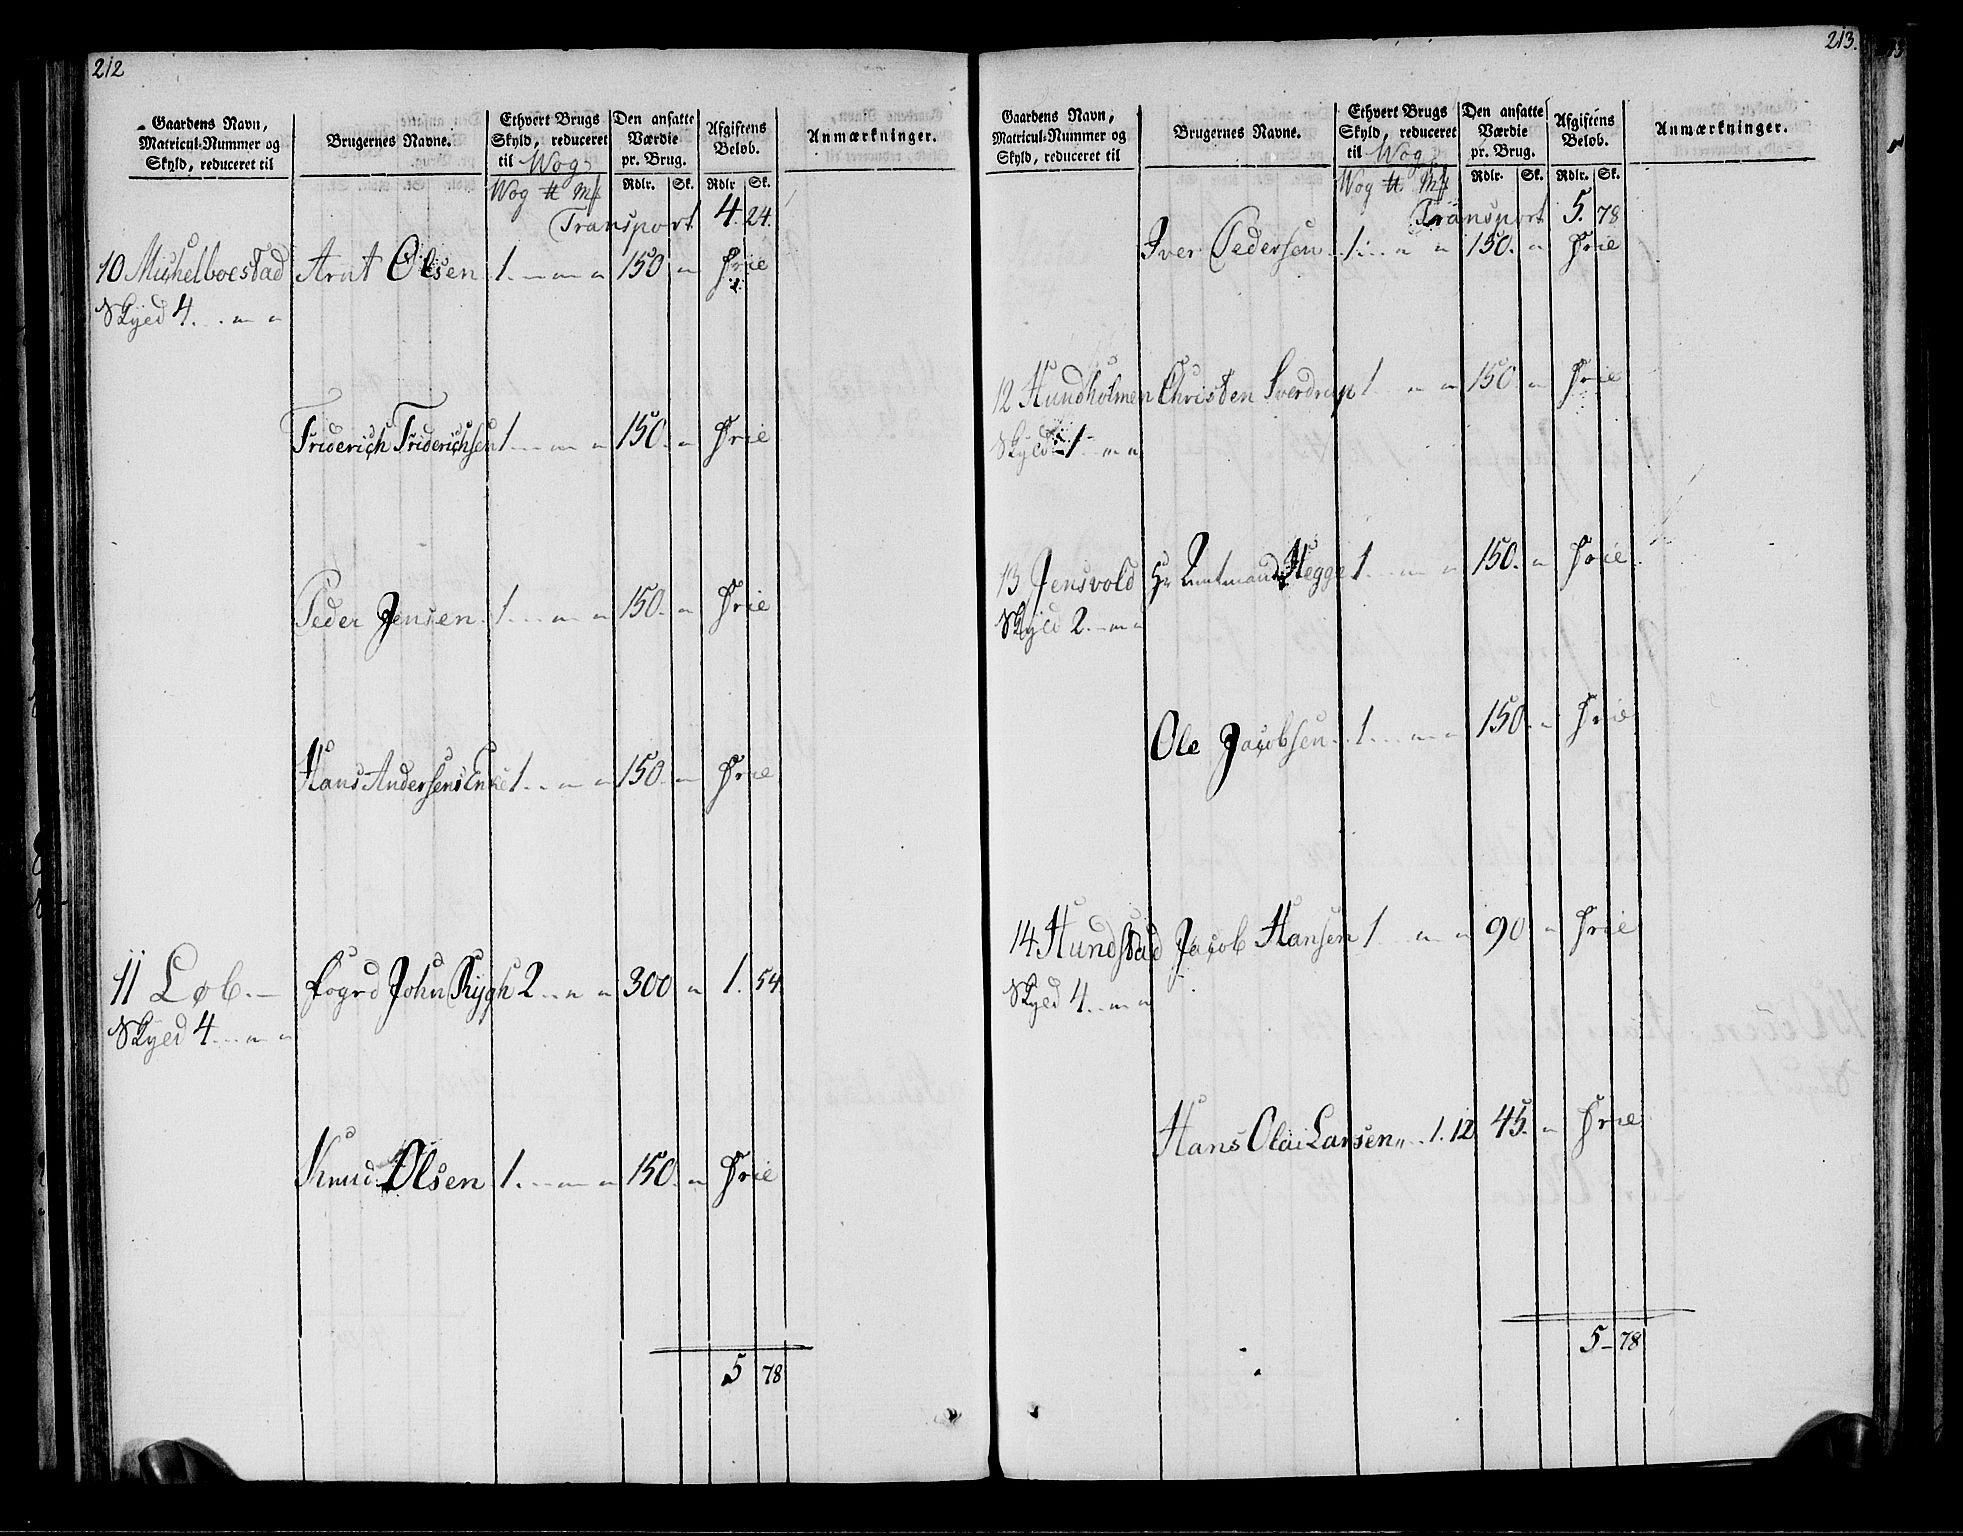 212
Gaardens Navn, Matricul-Nummer og Skyld, reduceret til | Brugernes Navne. | Ethvert Brugs Skyld, reduceret til Wog | Den ansatte Værdie pr. Brug. | Afgiftens Beløb. | Anmærkninger.
Wog ℔ Mk | Rdlr. | Sk. | Rdlr | Sk.
Transport 4. 24.
10 Michelboestad Arnt Olsen 1 . „ „ 150 „ Frie
Skyld 4. „ „
Friderich Friderichsen 1 . „ „ 150. „ Frie
Peder Jensen 1 . „ „ 150. „ Frie
Hans Andersens Enke 1 . „ „ 150. „ Frie
11 Løb. Fogrd John Rygh 2 . „ „ 300 „ 1. 54
Skyld 4 . „ „
Knud Olsen 1 . „ „ 150. „ Frie
5 78
213.
Gaardens Navn, Matricul-Nummer og Skyld, reduceret til | Brugernes Navne. | Ethvert Brugs Skyld, reduceret til Wog | Den ansatte Værdie pr. Brug. | Afgiftens Beløb. | Anmærkninger.
Wog ℔ Mk | Rdlr. | Sk. | Rdlr. | Sk.
Transport 5. 78
Iver Pedersen 1. „ „ 150. „ Frie
12 Hundholmen Christen Sverdrup 1 . „ „ 150 „ Frie
Skyld 1 „ „
13 Jensvold Hr Amtmand Hegge 1 . „ „ 150. „ Frie
Skyld 2. „ „
Ole Jacobsen 1 . „ „ 150 „ Frie
14 Hundstad Jacob Hansen 1 „ „ 90 „ Frie
Skyld 4 . „ „
Hans Olai Larsen „ . 1. 12 45. „ Frie
5 – 78